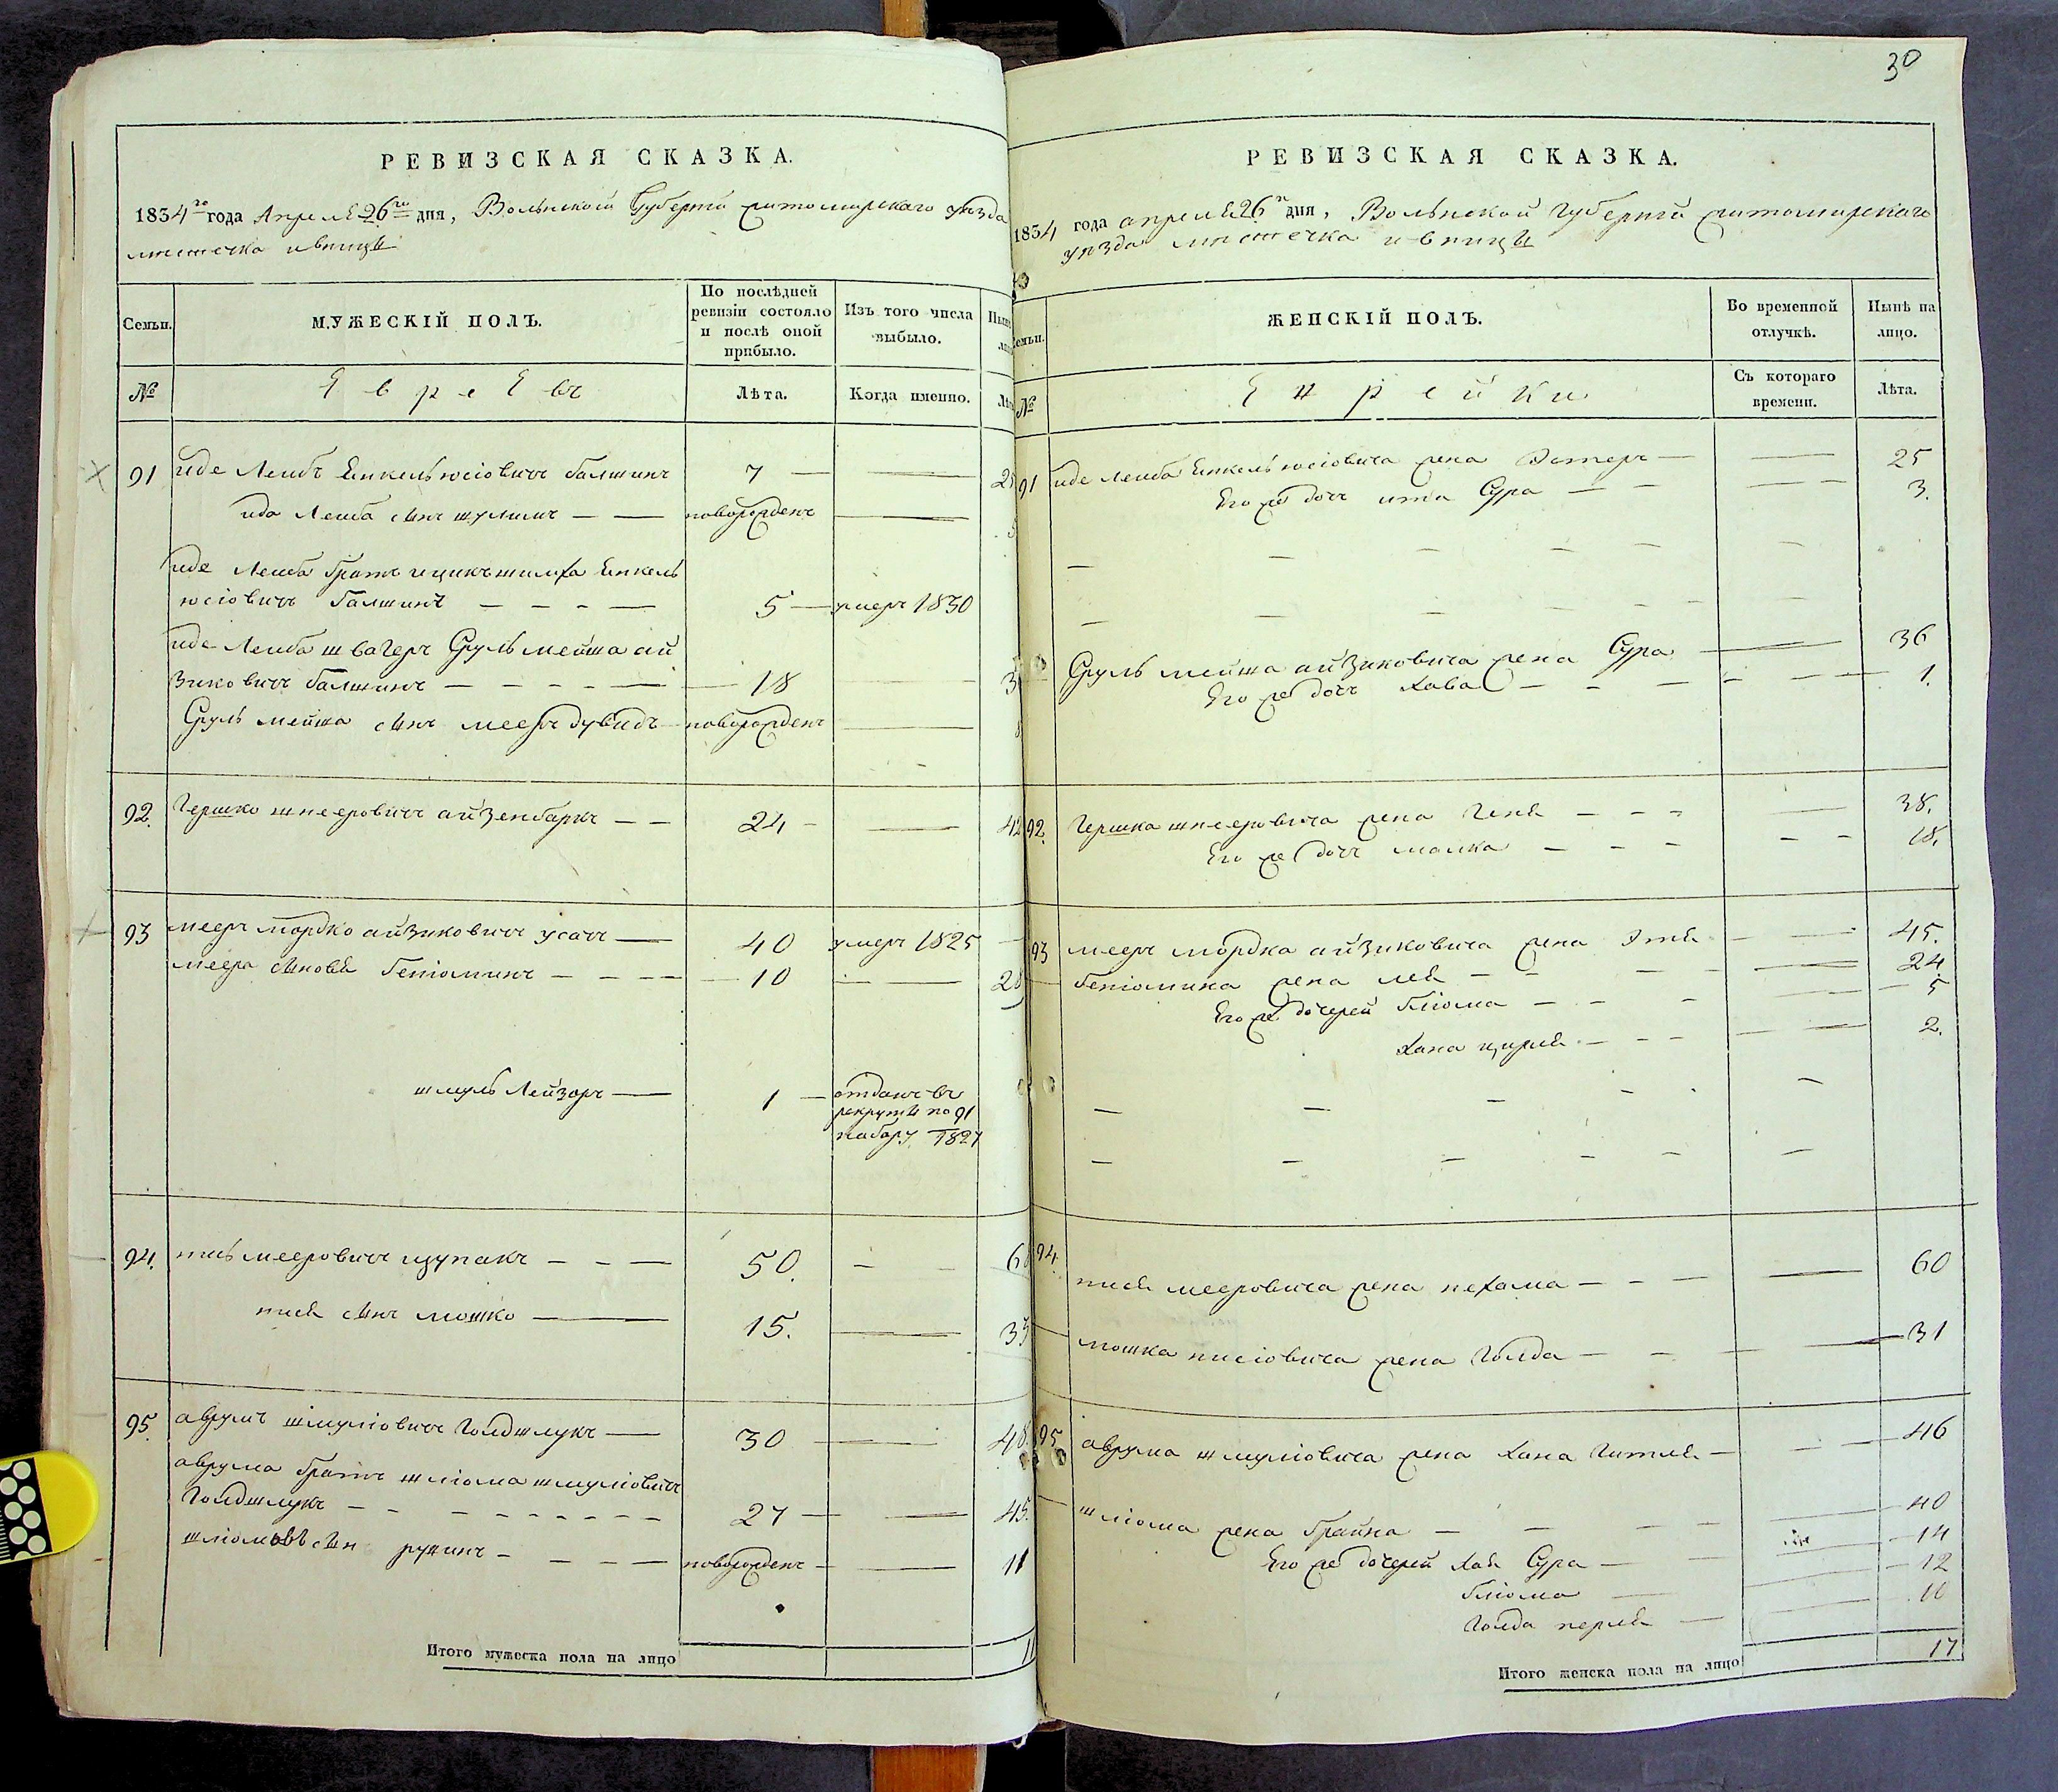 РЕВИЗСКАЯ СКАЗКА.
1834го года Апреля 26го дня, Волынской Губернiи житомирскаго уезда
местечка ивницы
Семьи.
МУЖЕСКIЙ ПОЛЪ.
По послѣдней ревизiи состояло и послѣ оной прибыло.
Изъ того числа выбыло.
№
Евреевъ
Лѣта.
Когда именно.
91 иде Лейбъ Енкель юсiовичъ балшинъ 7 — —
иде Лейба сынъ шулимъ — — новорожденъ —
иде Лейба братъ ицикъ шилха Енкель
юсiовичъ балшинъ — — — — 5 — умеръ 1830
иде Лейба швагеръ Сруль мейша ай
зиковичъ балшинъ — — — — 18 —
Сруль мейша сынъ мееръ дувидъ новорожденъ —
92. Гершко шнееровичъ айзенбаркъ — — 24 — — 42
93 мееръ мордко айзиковичъ усачъ — 40 умеръ 1825 —
меера сыновья бенiоминъ — — — — 10 — — 28
шмуль Лейзоръ — 1 — отданъ въ
рекруты по 91
набору 1827
94. мееровичъ цупакъ — — — 50. — —
сынъ мошко — 15. — 33
95. аврумъ шмулiовичъ Голдшлукъ — 30 — — 48
аврума братъ шлiома шмулiовичъ
Голдшлукъ — — — — — — 27 — — 45.
шлiомовъ сын рувинъ — — — — новорожденъ — — 11
Итого мужеска пола на лицо 11
30
РЕВИЗСКАЯ СКАЗКА.
1834 года апреля 26го дня, Волынской Губернiи житомирскаго
уезда местечка ивницы
Семьи.
ЖЕНСКIЙ ПОЛЪ.
Во временной отлучкѣ.
Нынѣ на лицо.
№
Еврейки
Съ котораго времени.
Лѣта.
91 иде Лейба Енкель юсiовича жена Эстеръ — — 25
Его же дочь ита Сура — — — — 3.
Сруль мейша айзиковича жена Сура — — 36
Его же дочь хава — — — — — 1.
92. Гершка шнееровича жена Геня — — — — 38.
Его же дочь малка — — — — — 18.
93 мееръ мордка айзиковича жена Этя — — 45.
бенiомина жена лея — — — — 24
Его же дочерей блiома — — — — 5
хана цирля — — — — 2.
94. мееровича жена нехама — — — — 60
мошка жена Голда — — — — 31
95. аврума шмулiовича жена хана Гитля — — — 46
шлiома жена брайна — — — — 40
Его же дочерей хая Сура — — 14
блiома — — 12
Голда перля — — 10
Итого женска пола на лицо 17